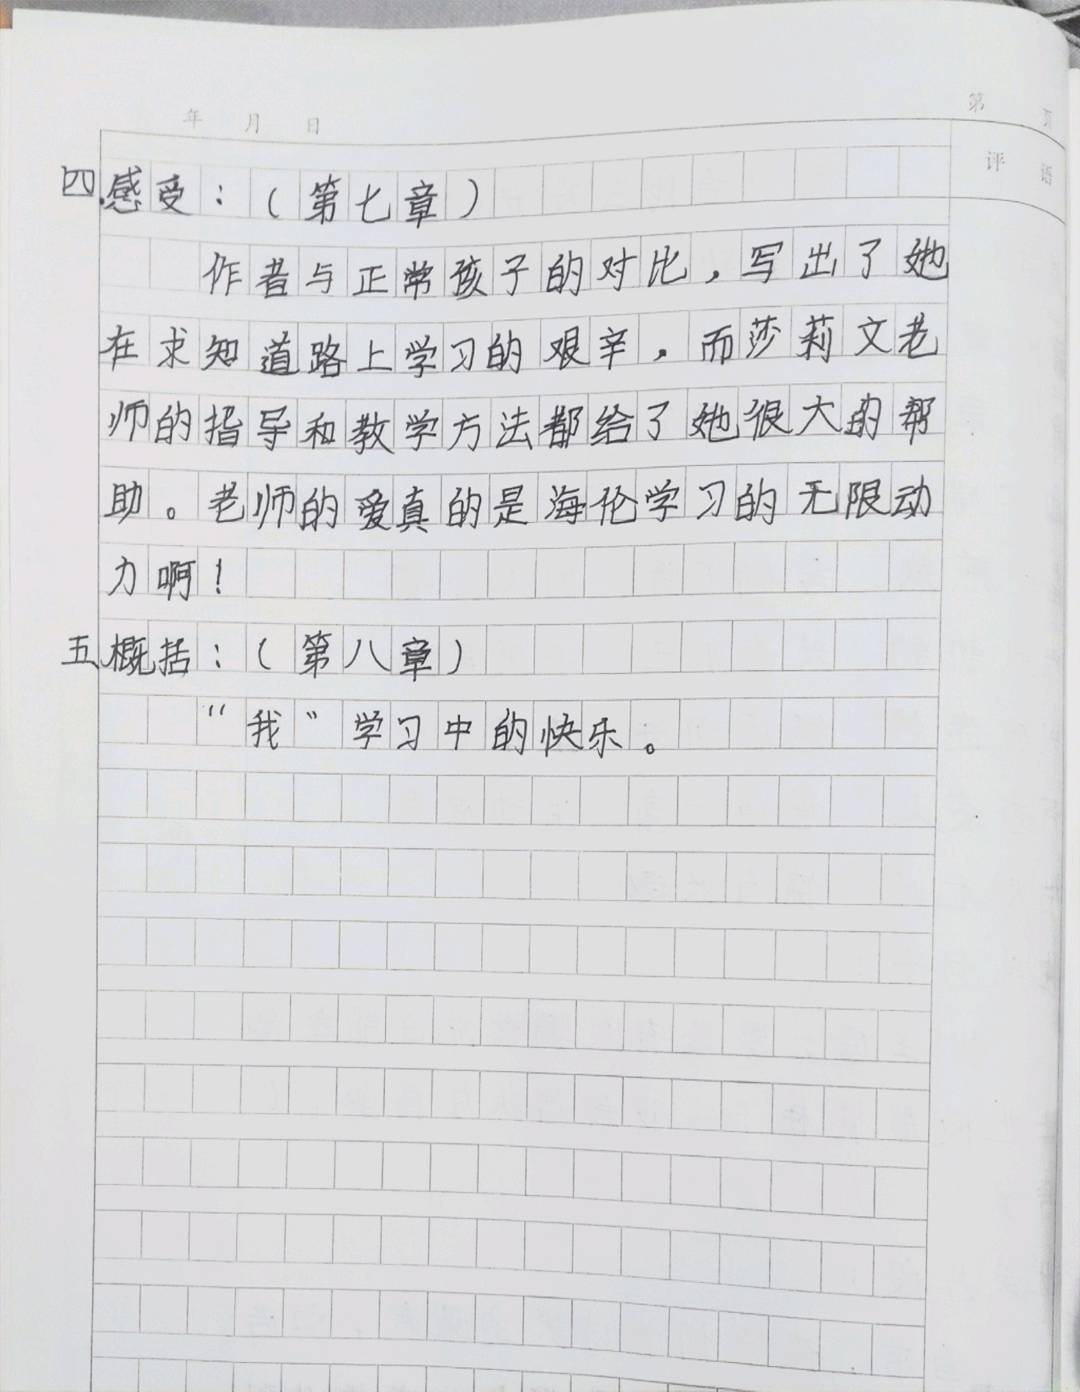 年 月 日
第 页
评语
四.感受：（第七章）
作者与正常孩子的对比，写出了她
在求知道路上学习的艰辛，而莎莉文老
师的指导和教学方法都给了她很大的帮
助。老师的爱真的是海伦学习的无限动
力啊！
五、概括：（第八章）
“我”学习中的快乐。